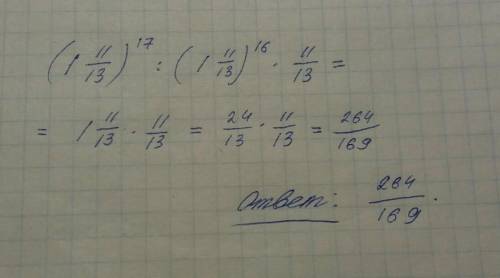 (1 11/13)^17 : (1 11/13)^16 · 11/13 =
= 1 11/13 · 11/13 = 24/13 · 11/13 = 264/169
Ответ: 264/169.